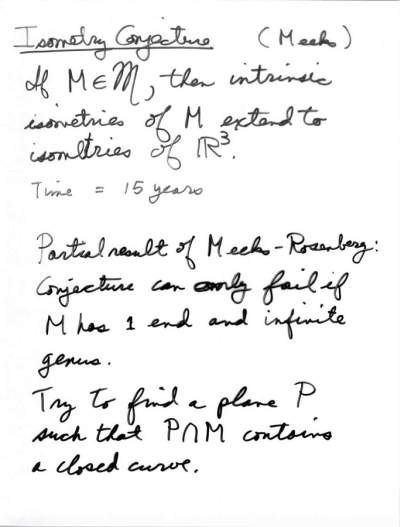 Isometry Conjecture (Meeks)
If M ∈ ℳ, then intrinsic
isometries of M extend to
isometries of ℝ³.
Time = 15 years
Partial result of Meeks-Rosenberg:
Conjecture can only fail if
M has 1 end and infinite
genus.
Try to find a plane P
such that P∩M contains
a closed curve.